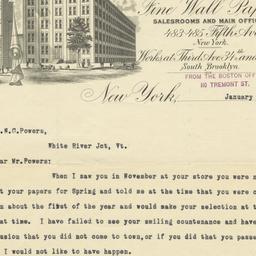 Fine Wall Pap
SALESROOMS AND MAIN OFFI
483-485 Fifth Ave
New York.
Works at Third Ave. 34th and
South Brooklyn.
FROM THE BOSTON OFF
110 TREMONT ST.
New York, January
.N.C.Powers,
White River Jct, Vt.
ar Mr.Powers:
When I saw you in November at your store you were n
t your papers for Spring and told me at the time that you were c
n about the first of the year and would make your selection at t
at time. I have failed to see your smiling countenance and have
usion that you did not come to town, or if you did that you passe
I would not like to have happen.